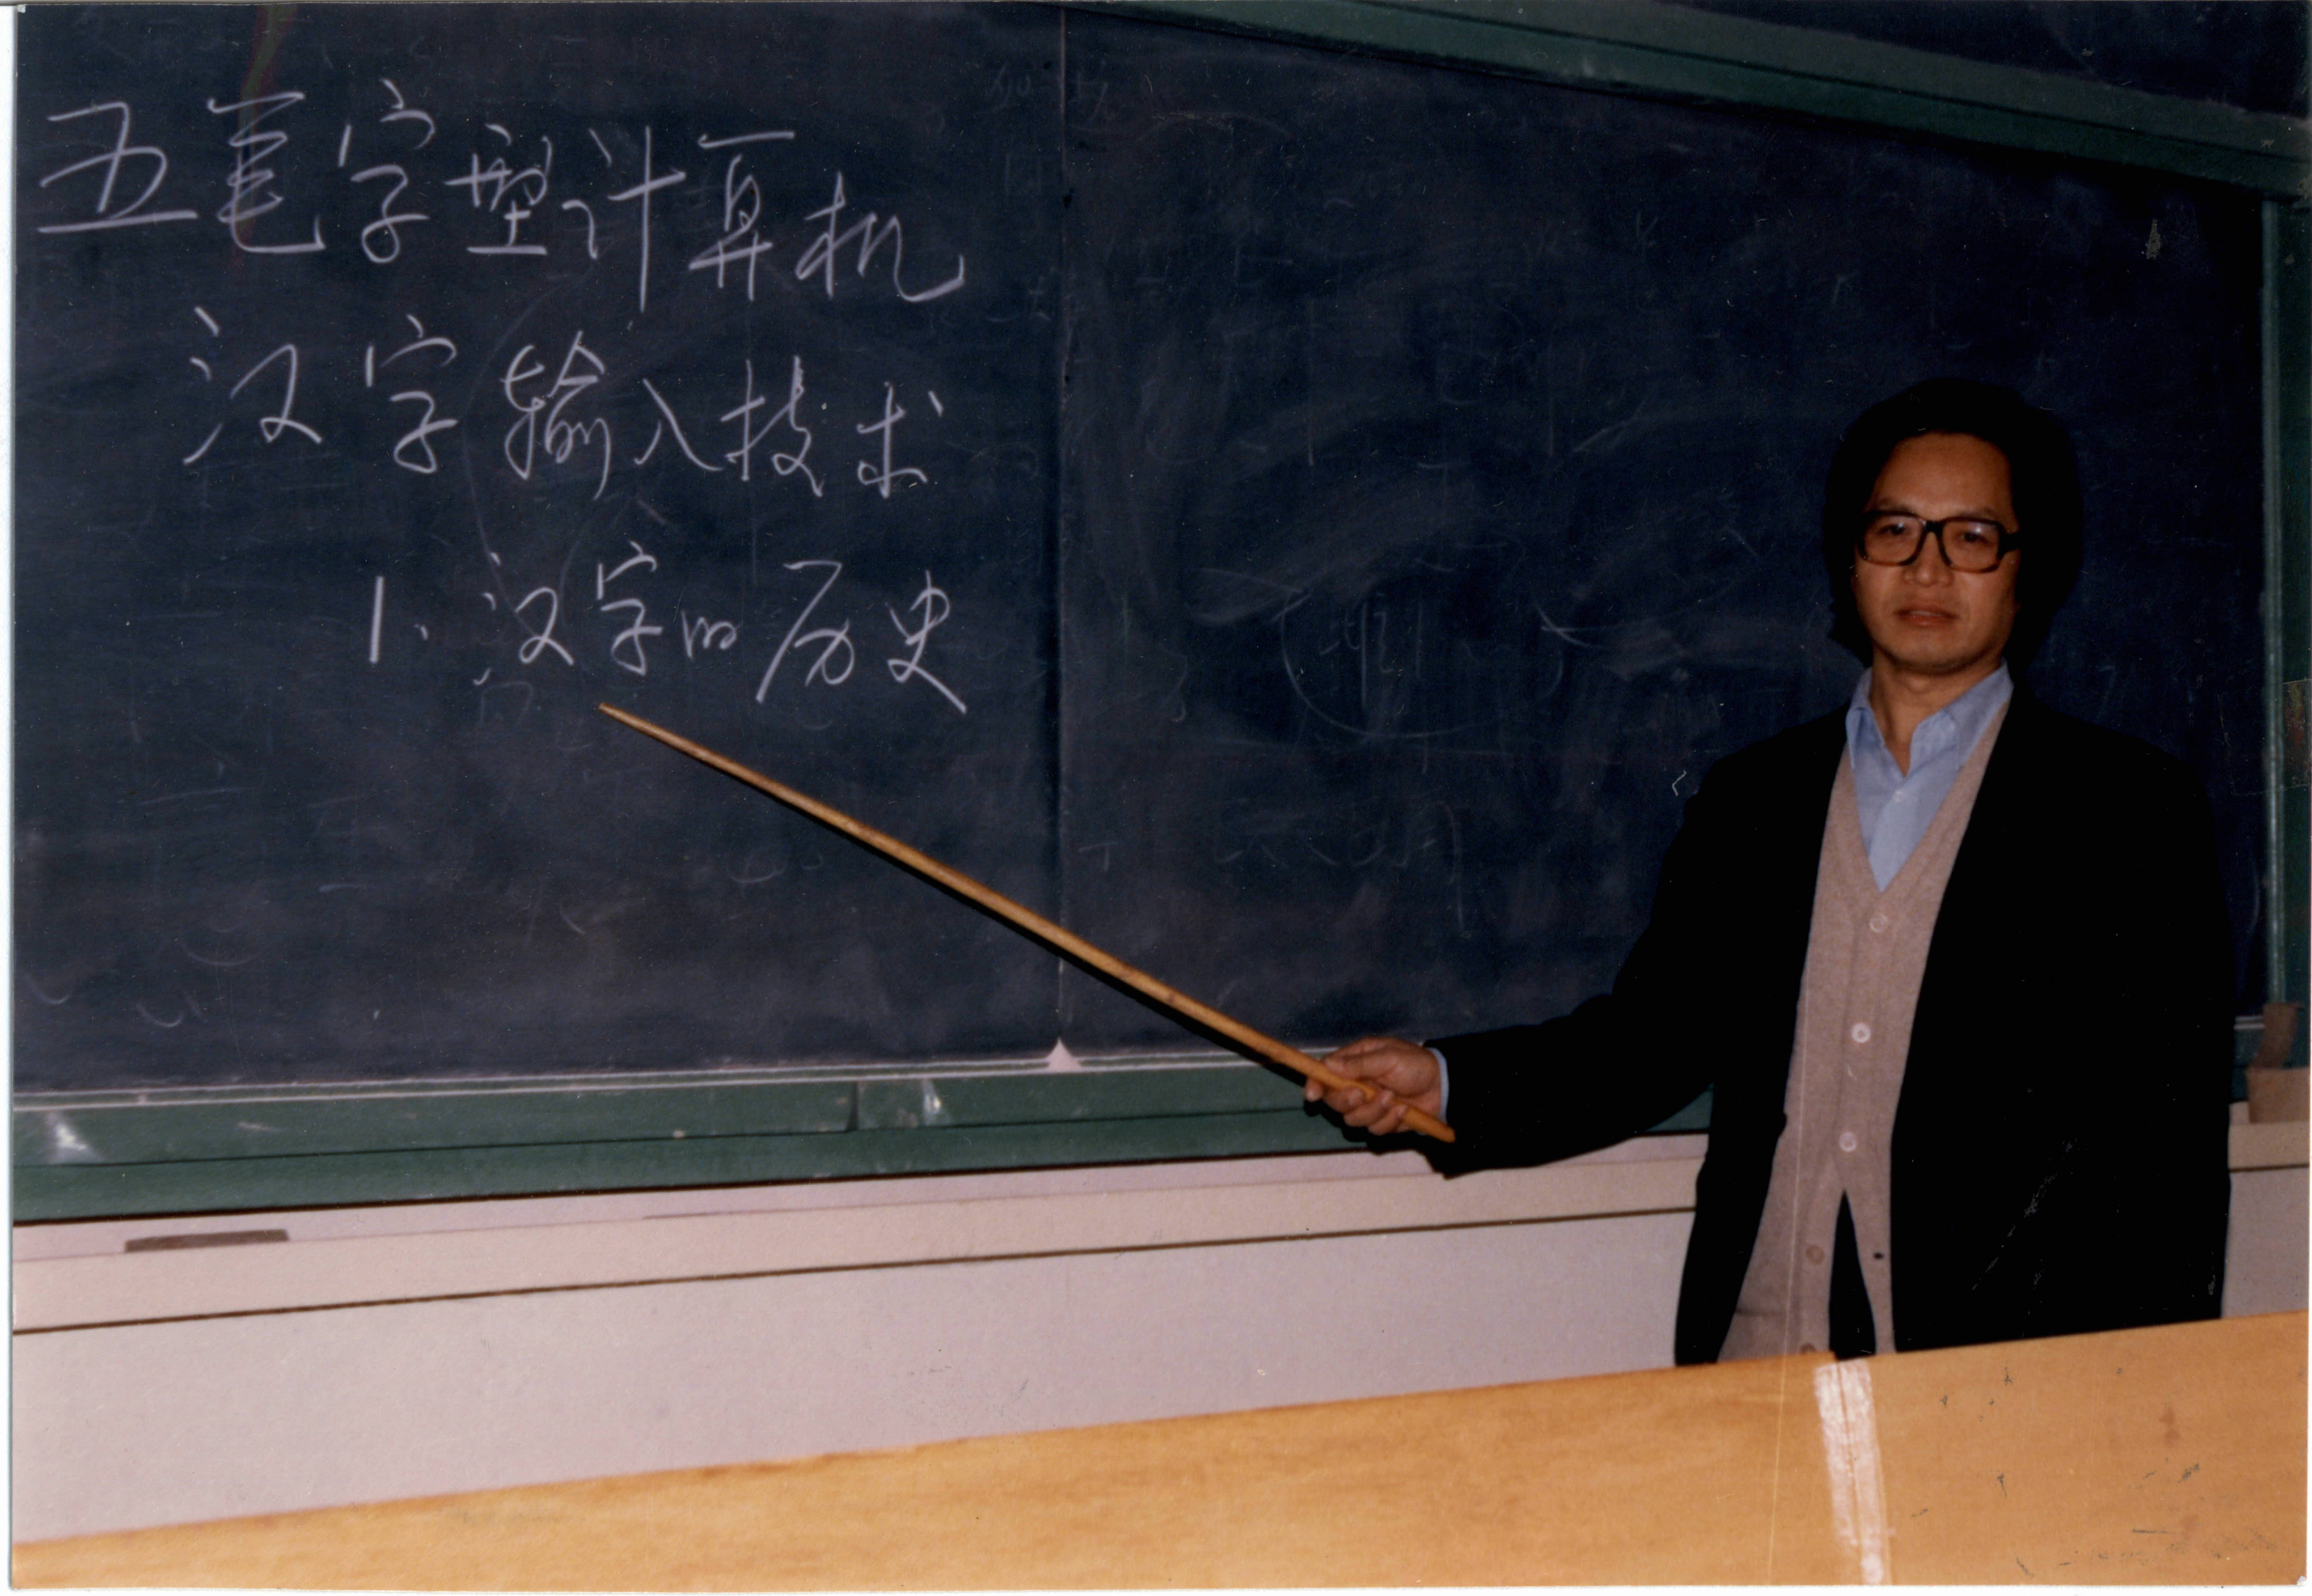 五笔字型计算机
汉字输入技术
1、汉字的历史